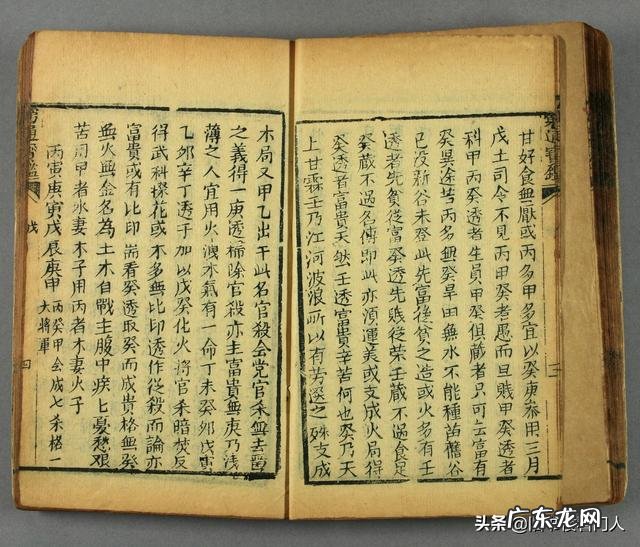 甘好食無厭或丙多甲多宜以癸庚參用三月
戊土司令不見丙甲癸者愚而且賤甲癸透者
科甲丙癸透者生員甲癸俱藏者只可云富有
癸異途苦丙多無癸旱田無水不能種苗舊谷
已沒新谷未登此先富後貧之造或火多有壬
透者先貧從富癸透先賤從榮壬藏不過食足
癸藏不過名傳即此亦須運美或支成火局得
癸透者富貴天然壬透富貴辛苦何也癸乃天
上甘霖壬乃江河波浪所以有劳逸之殊支成
木局又甲乙出干此名官殺会党官杀無去留
之義得一庚透掃除官殺亦主富貴無庚乃浅
薄之人宜用火洩木氣有一命丁未癸卯戊寅
乙卯辛丁透于加以戊癸化火將官杀暗焚反
得武科探花或木多無比印透作從殺而論亦
富貴或有比印耑看癸透取癸而成貴格無癸
無火無金名為土木自戰主腹中疾匕憂愁艰
苦司甲者水妻木子用丙者木妻火子
丙寅庚寅戊辰庚申
丙癸甲会成七杀格一
大將軍
窮通寶鑑
戊
四
窮通寶鑑
头条
广东龙网